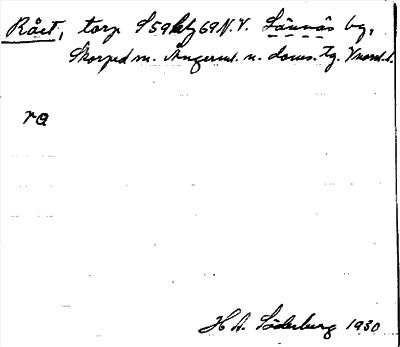 Rået, torp S59 69 N.V. Lännäs by,
Skorped sn. Ångerml. n. doms. tg. Vnorrl. l.
ra
H A. Söderberg 1930